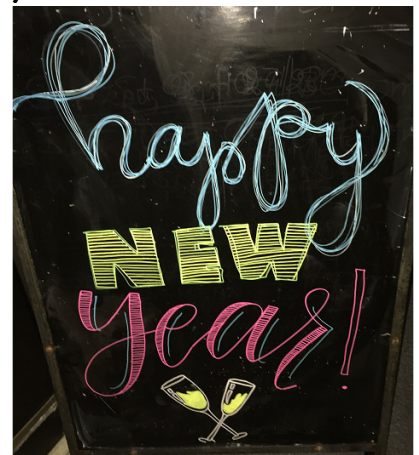 happy
NEW
year!